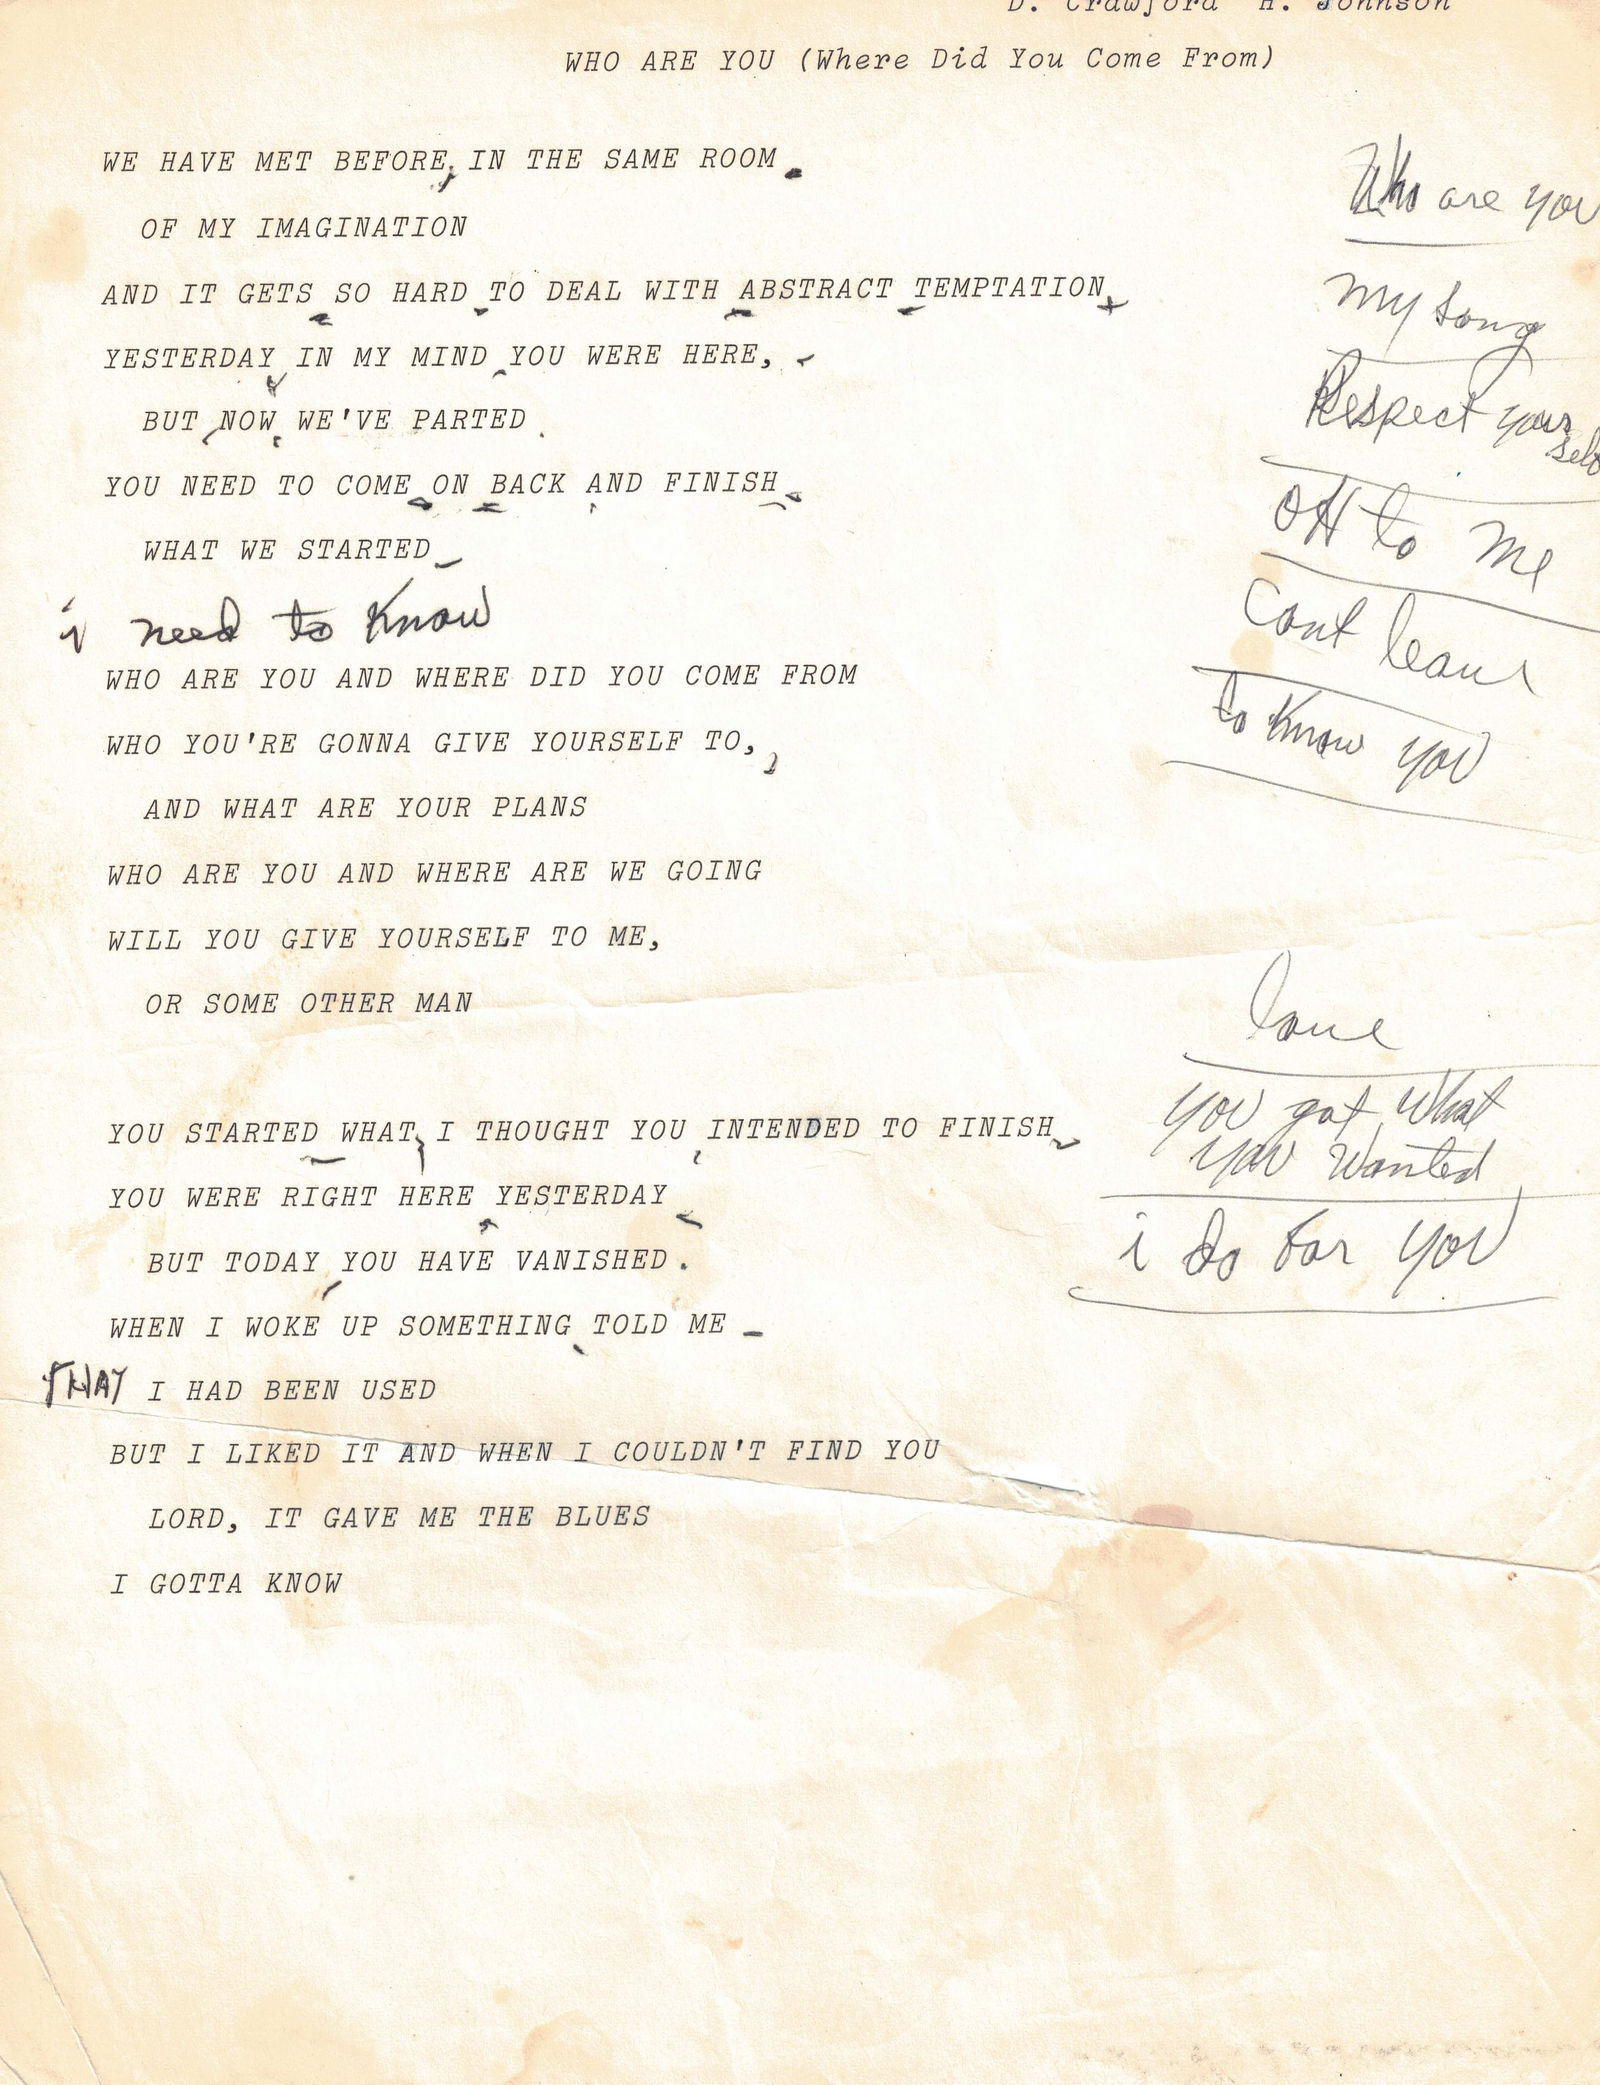 D. Crawford H. Johnson
WHO ARE YOU (Where Did You Come From)
WE HAVE MET BEFORE, IN THE SAME ROOM.
OF MY IMAGINATION
AND IT GETS SO HARD TO DEAL WITH ABSTRACT TEMPTATION
YESTERDAY IN MY MIND YOU WERE HERE,
BUT NOW WE'VE PARTED
YOU NEED TO COME ON BACK AND FINISH
WHAT WE STARTED
i need to know
WHO ARE YOU AND WHERE DID YOU COME FROM
WHO YOU'RE GONNA GIVE YOURSELF TO,
AND WHAT ARE YOUR PLANS
WHO ARE YOU AND WHERE ARE WE GOING
WILL YOU GIVE YOURSELF TO ME,
OR SOME OTHER MAN
YOU STARTED WHAT, I THOUGHT YOU INTENDED TO FINISH
YOU WERE RIGHT HERE YESTERDAY
BUT TODAY YOU HAVE VANISHED.
WHEN I WOKE UP SOMETHING TOLD ME
I HAD BEEN USED
BUT I LIKED IT AND WHEN I COULDN'T FIND YOU
LORD, IT GAVE ME THE BLUES
I GOTTA KNOW
Who are you
my song
Respect your
self
to me
cant leave
to know you
love
you got what
you wanted
i do for you